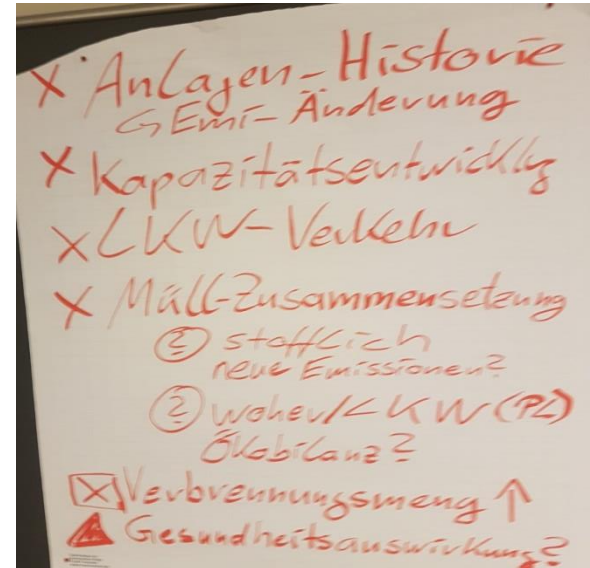 X Anlagen-Historie
↳ Emi-Änderung
X Kapazitätsentwicklg
X LKW-Verkehr
X Müll-Zusammensetzung
? stofflich
neue Emissionen?
? woher/LKW (PL)
Ökobilanz?
X Verbrennungsmeng ↑
Gesundheitsauswirkung?